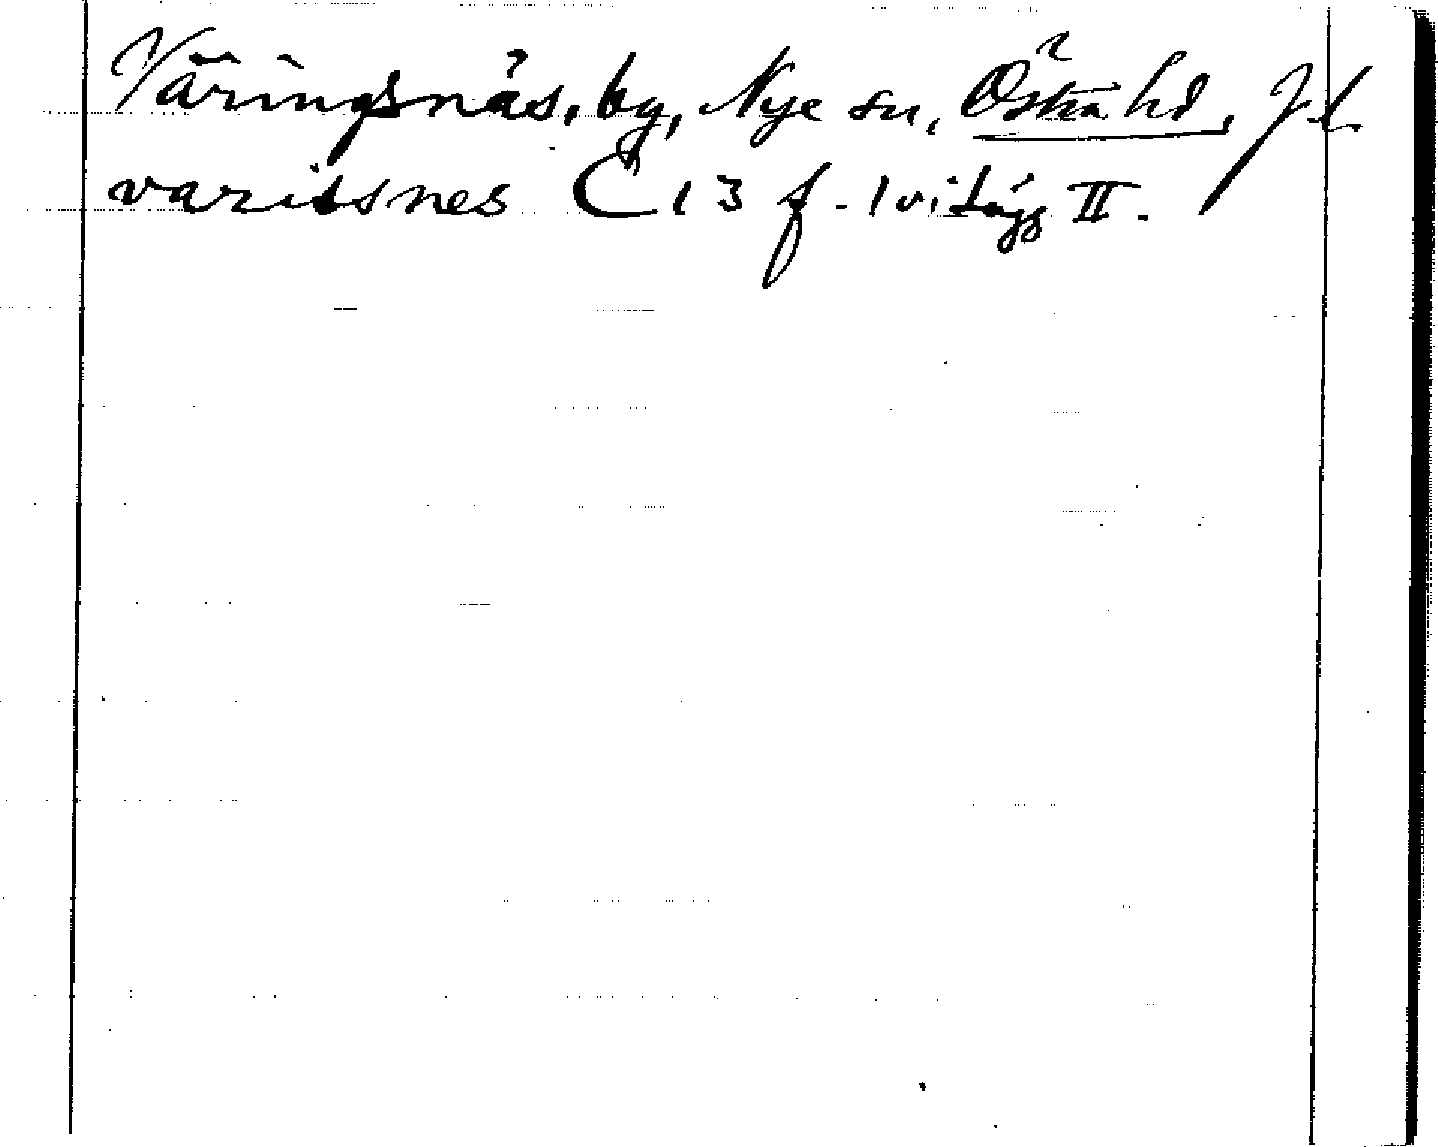 Väringsnäs, by, Nye sn, Östra hd, J. l.
varissnes C 13 f. 1 vitägg II.